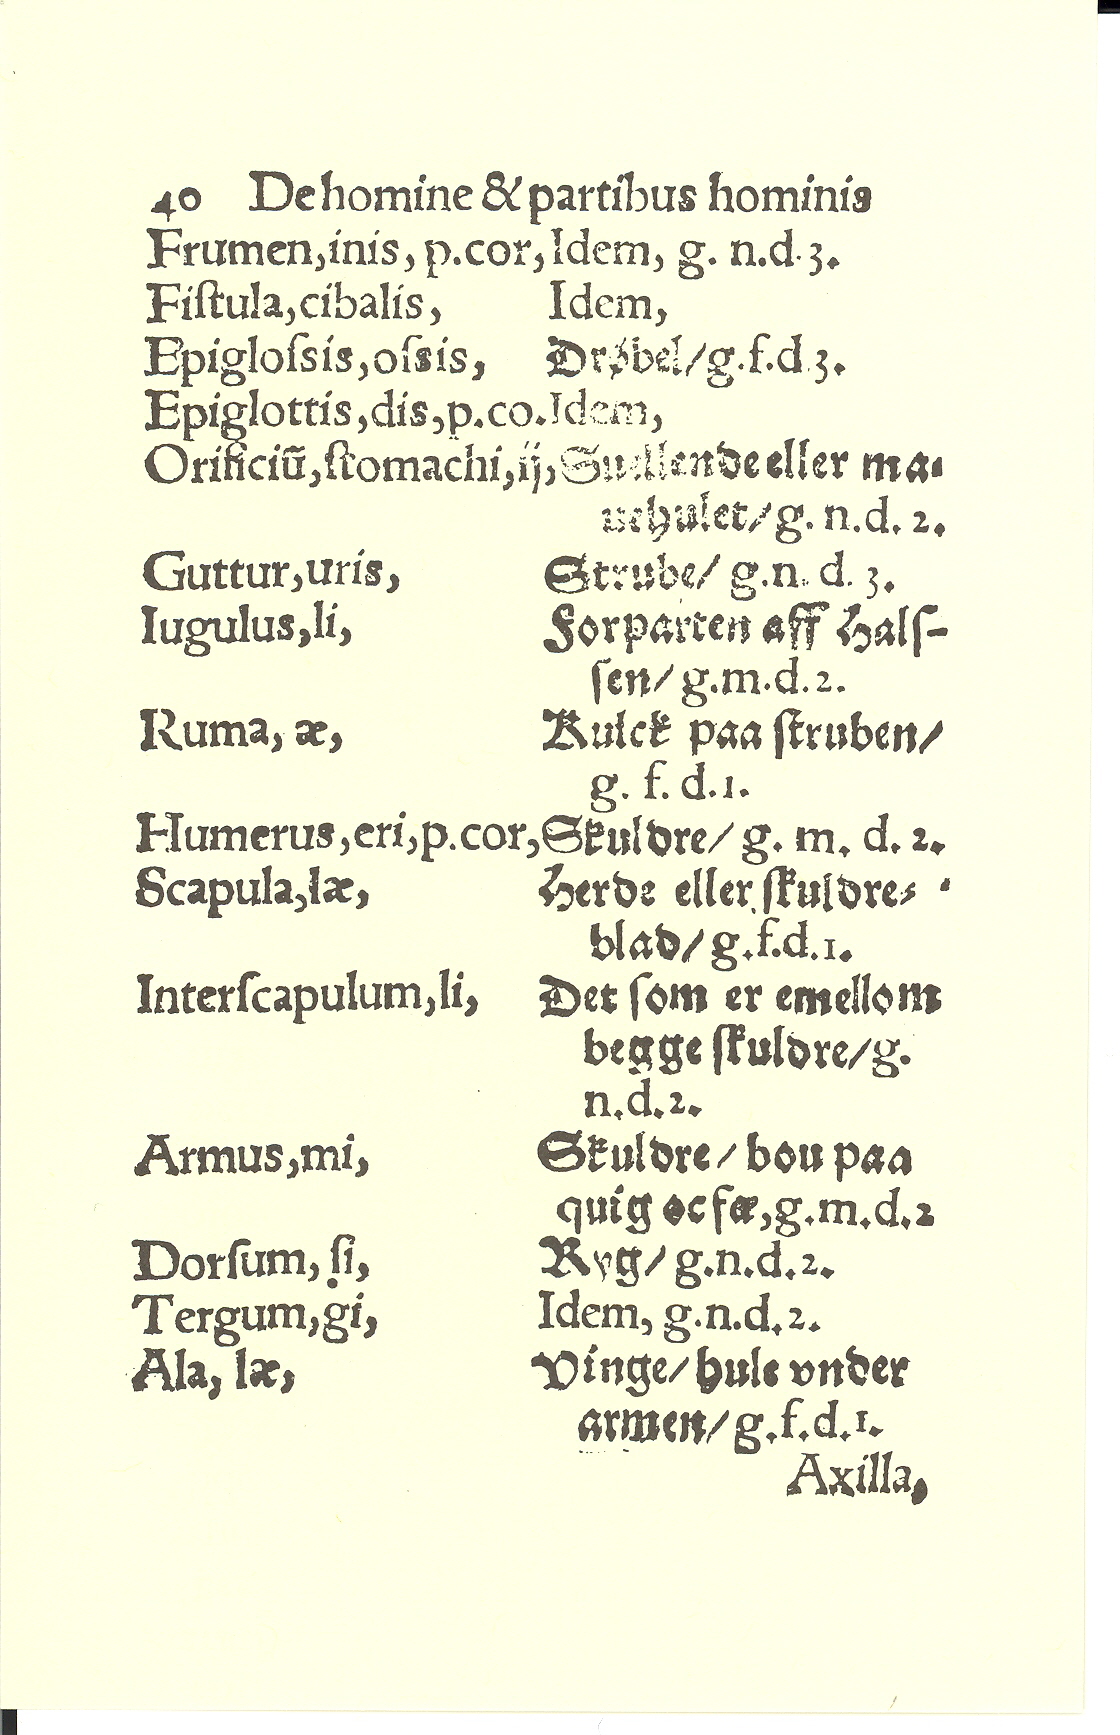 40 De homine & partibus hominis
Frumen,inis, p.cor, Idem, g. n.d.3.
Fiſtula,cibalis, Idem,
Epigloſsis,oſsis, Drøbel/g.f.d.3.
Epiglottis,dis,p.co. Idem,
Orificiū,ſtomachi,ij, Suellende eller ma-
uehulet/g. n.d. 2.
Guttur,uris, Strube/ g.n. d. 3.
Iugulus,li, Forparten aff Halſ-
ſen/ g.m.d.2.
Ruma, æ, Kulck paa ſtruben/
g. f. d.1.
Humerus,eri,p.cor, Skuldre/ g. m. d. 2.
Scapula,læ, Herde eller ſkuldre-
blad/g.f.d.1.
Interſcapulum,li, Det ſom er emellom
begge ſkuldre/g.
n.d.2.
Armus,mi, Skuldre/bou paa
quig oc fæ,g.m.d.2
Dorſum, ſi, Ryg/ g.n.d.2.
Tergum,gi, Idem, g.n.d.2.
Ala, læ, Vinge/hule vnder
armen/g.f.d.1.
Axilla,